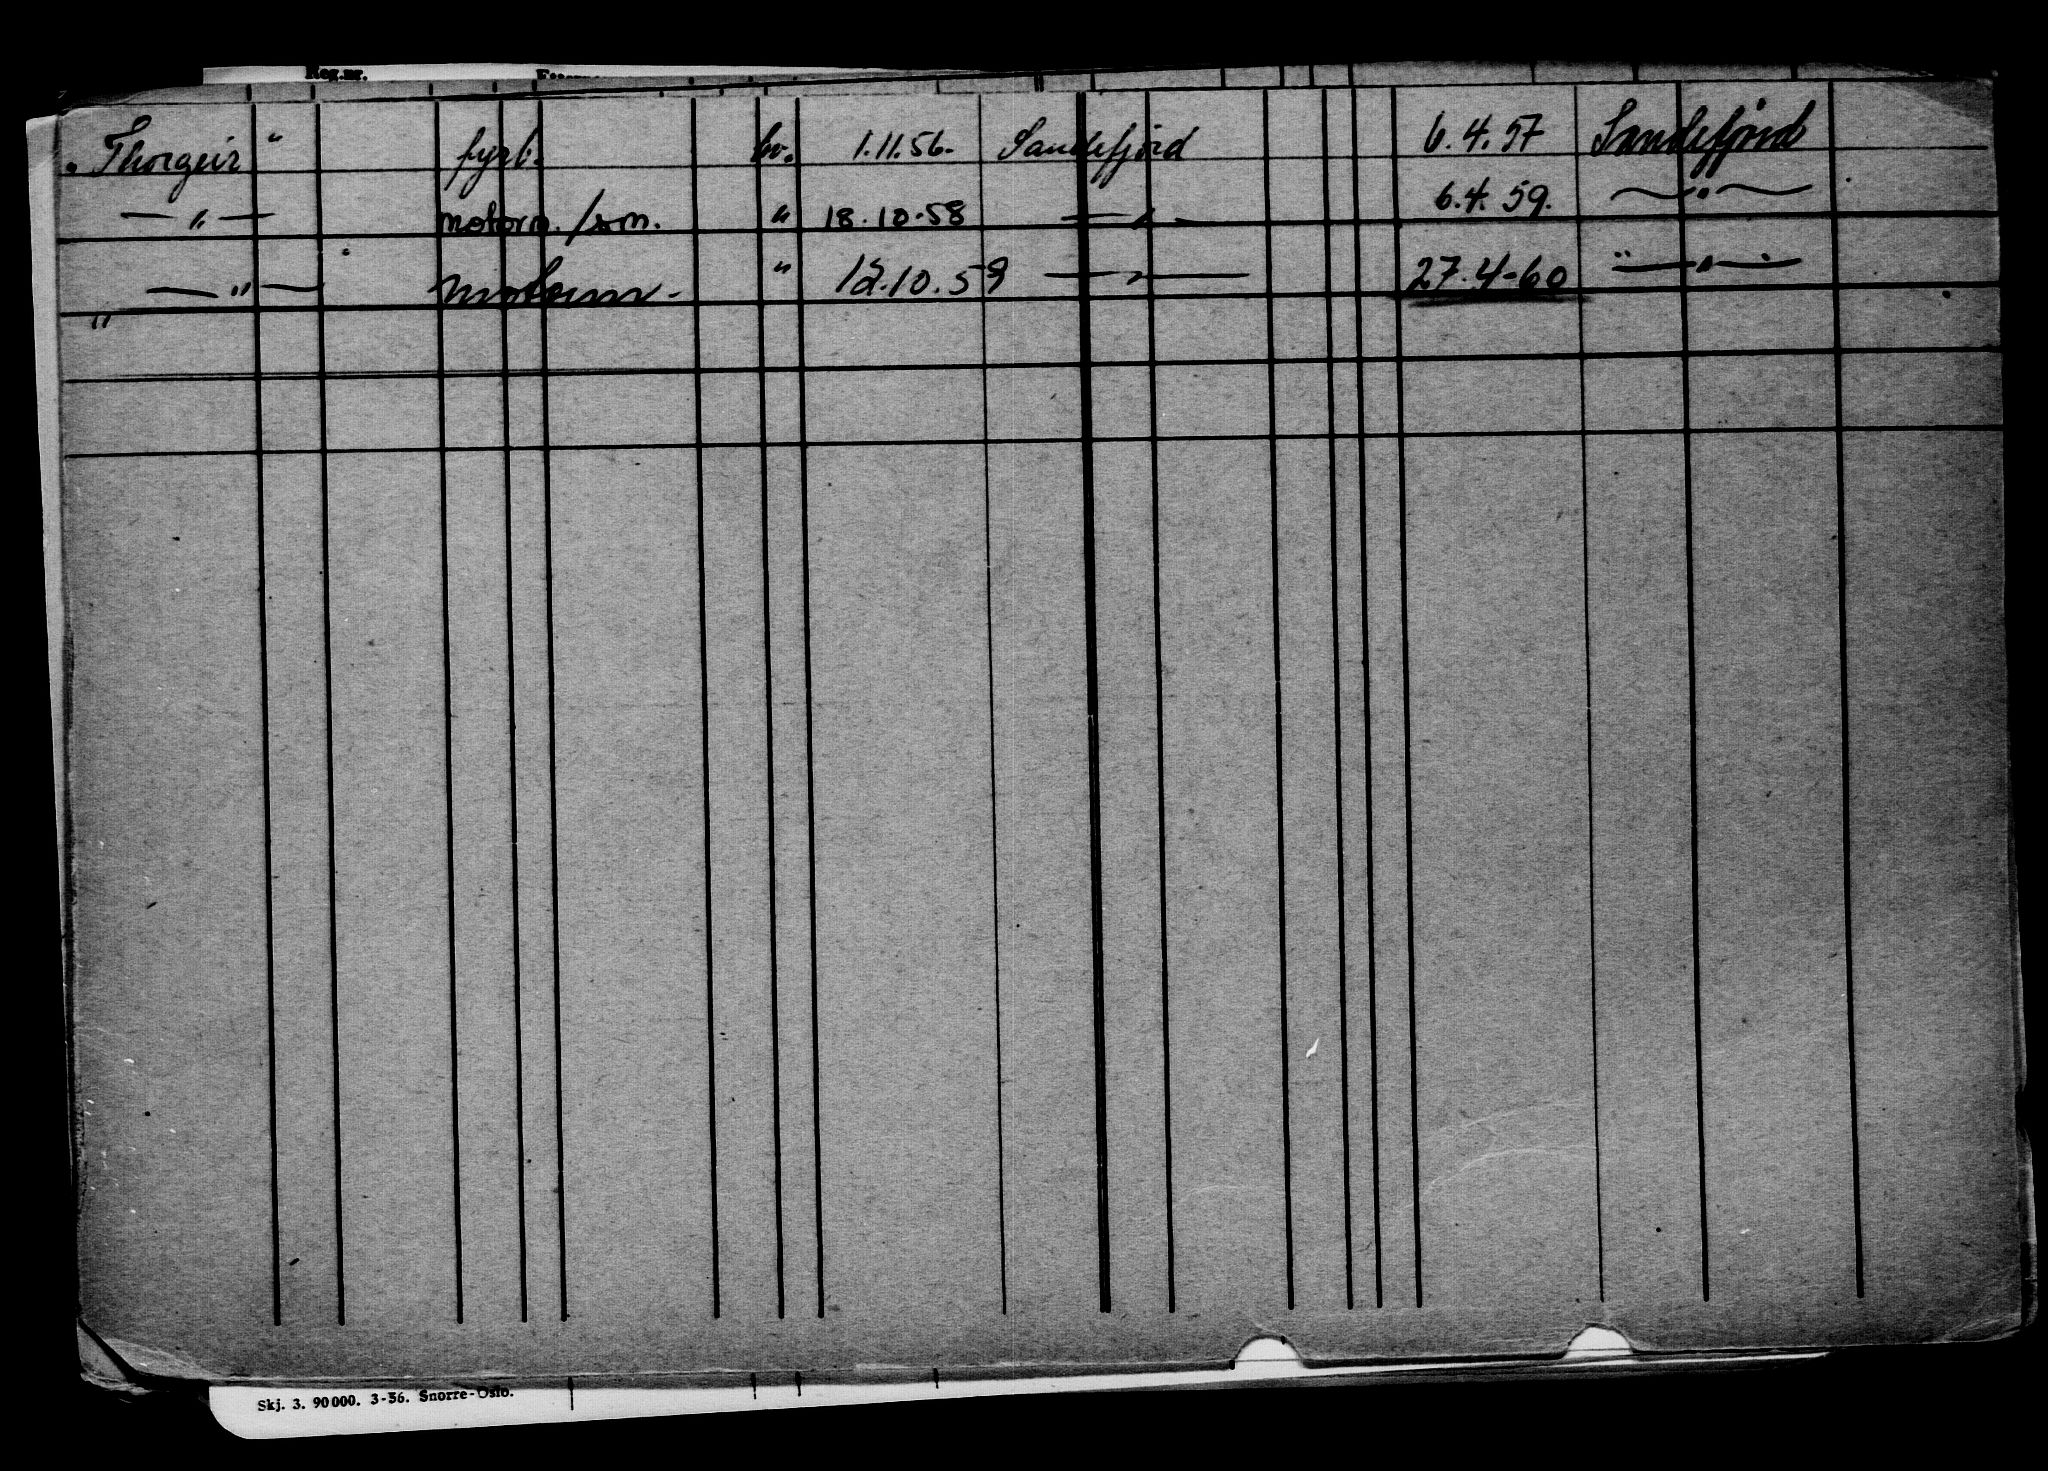 Reg.nr.
"Thorgeir" fyrb. hv. 1.11.56. Sandefjord 6.4.57 Sandefjord
— " — motorm./sm. " 18.10.58 — " — 6.4.59. — " —
" — " — motorm. " 12.10.59 — " — 27.4-60 — " —
Skj. 3. 90000. 3-56. Snorre-Oslo.